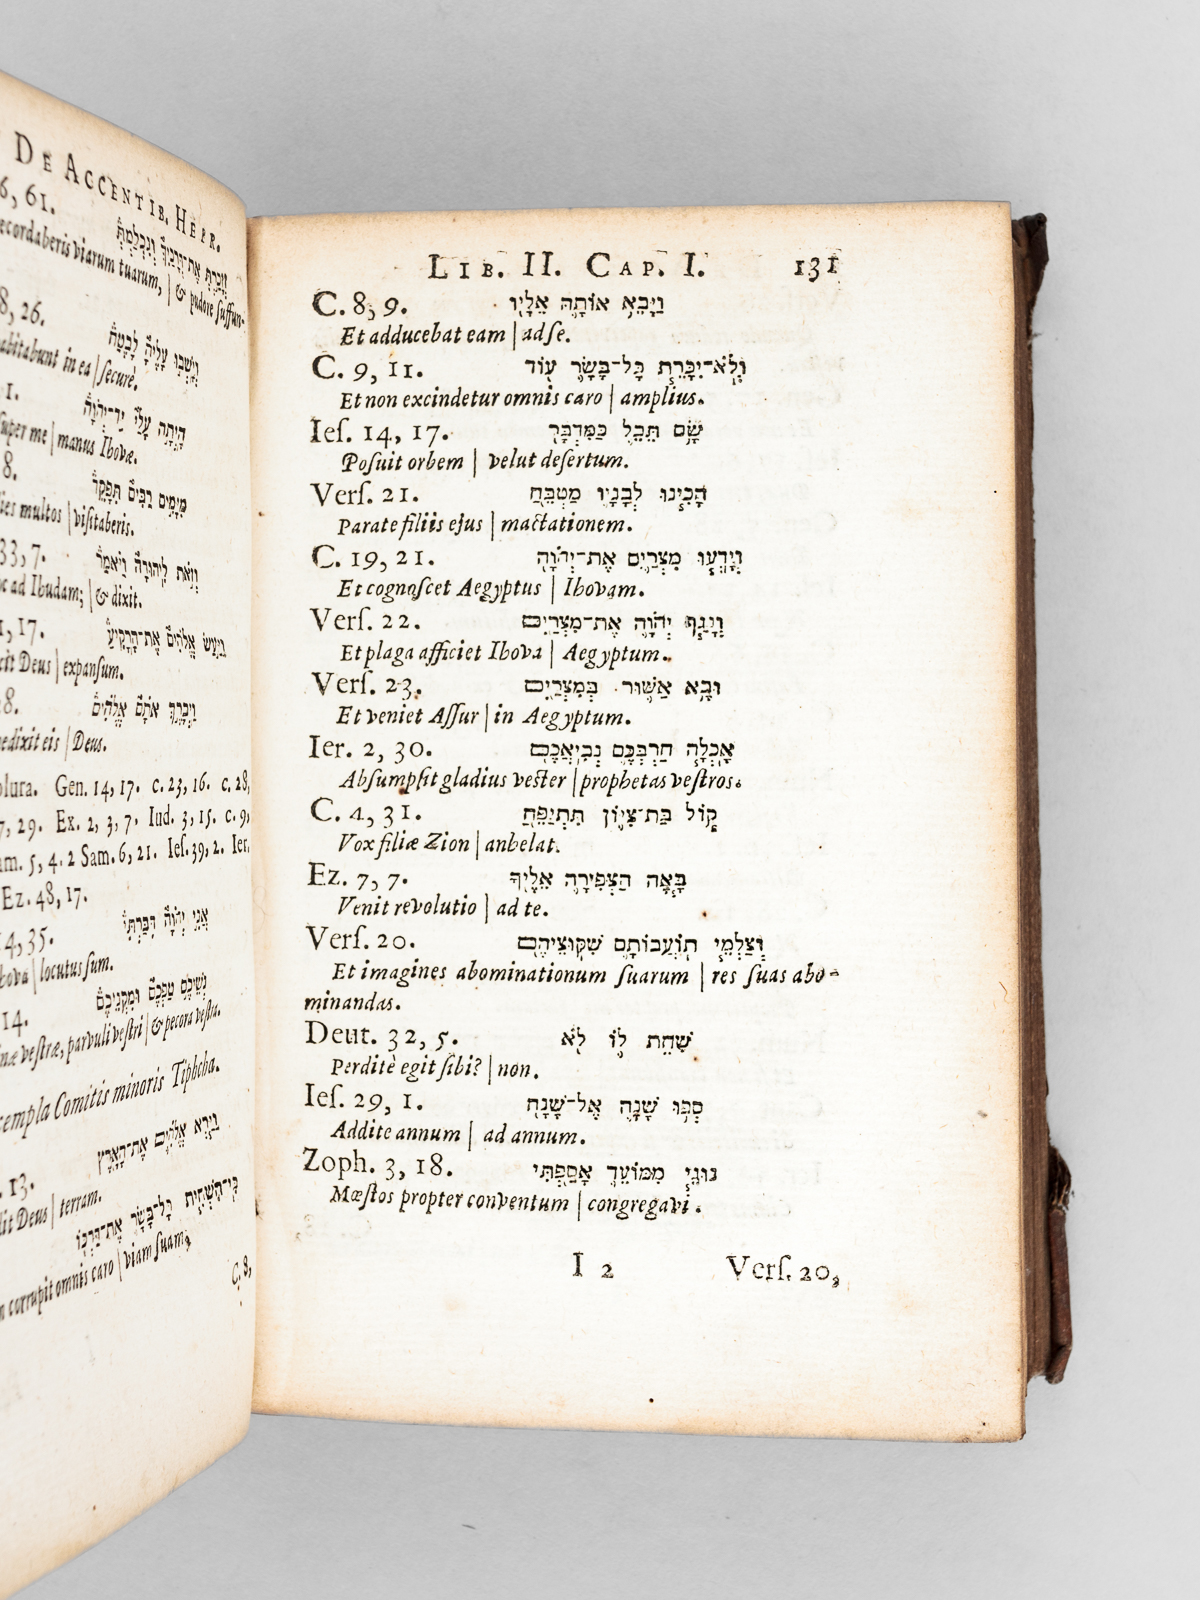 DE ACCENTIB. HEBR.
6, 61.
ecordaberis viarum tuarum, | & pudore suffun-
8, 26.
abitabunt in ea | securè.
1.
super me | manus Ihovæ.
8.
ies multos | visitaberis.
33, 7.
c ad Ihudam; | & dixit.
1, 17.
cit Deus | expansum.
28.
nedixit eis | Deus.
plura. Gen. 14, 17. c. 23, 16. c. 28,
7, 29. Ex. 2, 3, 7. Iud. 3, 15. c. 9,
am. 5, 4. 2 Sam. 6, 21. Ies. 39, 2. Ier.
Ez. 48, 17.
4, 35.
hova | locutus sum.
14.
næ vestræ, parvuli vestri | & pecora vestra.
xempla Comitis minoris Tiphcha.
13.
dit Deus | terram.
m corrupit omnis caro | viam suam,
C. 8,
LIB. II. CAP. I. 131
C. 8, 9. וַיָּבֵא אוֹתָהּ אֵלָיו
Et adducebat eam | ad se.
C. 9, 11. וְלֹא־יִכָּרֵת כָּל־בָּשָׂר עוֹד
Et non excindetur omnis caro | amplius.
Ies. 14, 17. שָׂם תֵּבֵל כַּמִּדְבָּר
Posuit orbem | velut desertum.
Vers. 21. הָכִינוּ לְבָנָיו מַטְבֵּחַ
Parate filiis ejus | mactationem.
C. 19, 21. וְיָדְעוּ מִצְרַיִם אֶת־יְהֹוָה
Et cognoscet Aegyptus | Ihovam.
Vers. 22. וְנָגַף יְהֹוָה אֶת־מִצְרַיִם
Et plaga afficiet Ihova | Aegyptum.
Vers. 23. וּבָא אַשּׁוּר בְּמִצְרַיִם
Et veniet Assur | in Aegyptum.
Ier. 2, 30. אָכְלָה חַרְבְּכֶם נְבִיאֵכֶם
Absumpsit gladius vester | prophetas vestros.
C. 4, 31. קוֹל בַּת־צִיּוֹן תִּתְיַפֵּחַ
Vox filiæ Zion | anhelat.
Ez. 7, 7. בָּאָה הַצְּפִירָה אֵלֶיךָ
Venit revolutio | ad te.
Vers. 20. וְצַלְמֵי תוֹעֲבוֹתָם שִׁקּוּצֵיהֶם
Et imagines abominationum suarum | res suas abo-
minandas.
Deut. 32, 5. שִׁחֵת לוֹ לֹא
Perditè egit sibi? | non.
Ies. 29, 1. סְפוּ שָׁנָה אֶל־שָׁנָה
Addite annum | ad annum.
Zoph. 3, 18. נוּגֵי מִמּוֹעֵד אָסַפְתִּי
Mæstos propter conventum | congregavi.
I 2 Vers. 20,